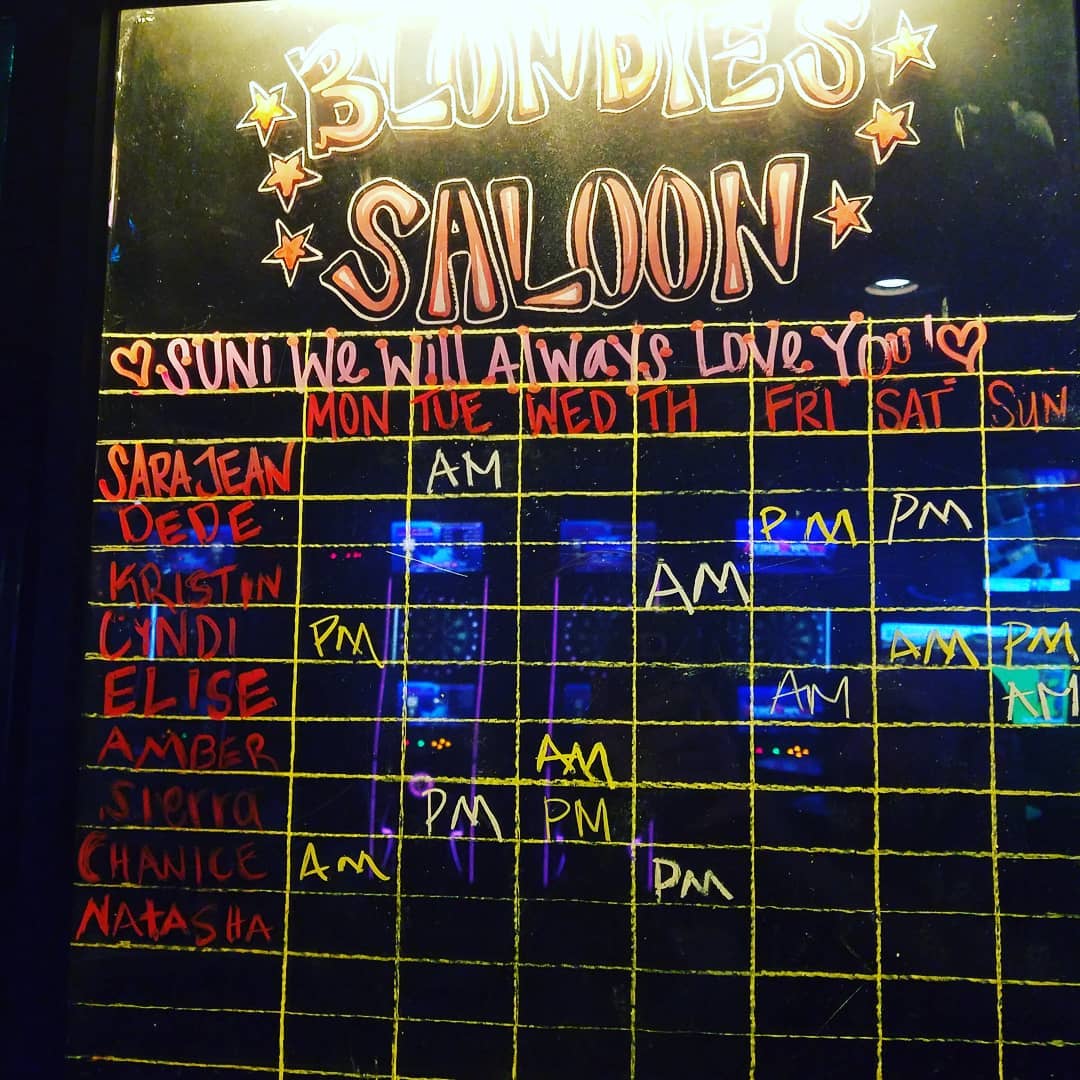 BLONDIES
SALOON
SUNI We Will Always Love You!
MON TUE WED TH FRI SAT SUN
SARAJEAN AM
DEDE PM PM
KRISTIN AM
CYNDI PM AM PM
ELISE AM AM
AMBER AM
Sierra PM PM
CHANICE AM PM
NATASHA